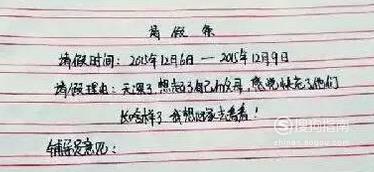 请假条
请假时间：2015年12月6日 — 2015年12月9日
请假理由：天深了，想起了自己的父母，感觉快忘了他们
长啥样了 我想回家去看看！
辅导员意见：
搜狗指南
zhinan.sogou.com